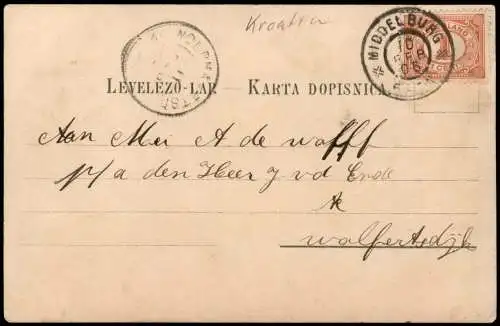 Kroatien
MIDDELBURG
LEVELEZŐ-LAP. — KARTA DOPISNICA
Aan Mei A de Wolff
p/a den Heer J v d Ende
te
Wolfertsdijk